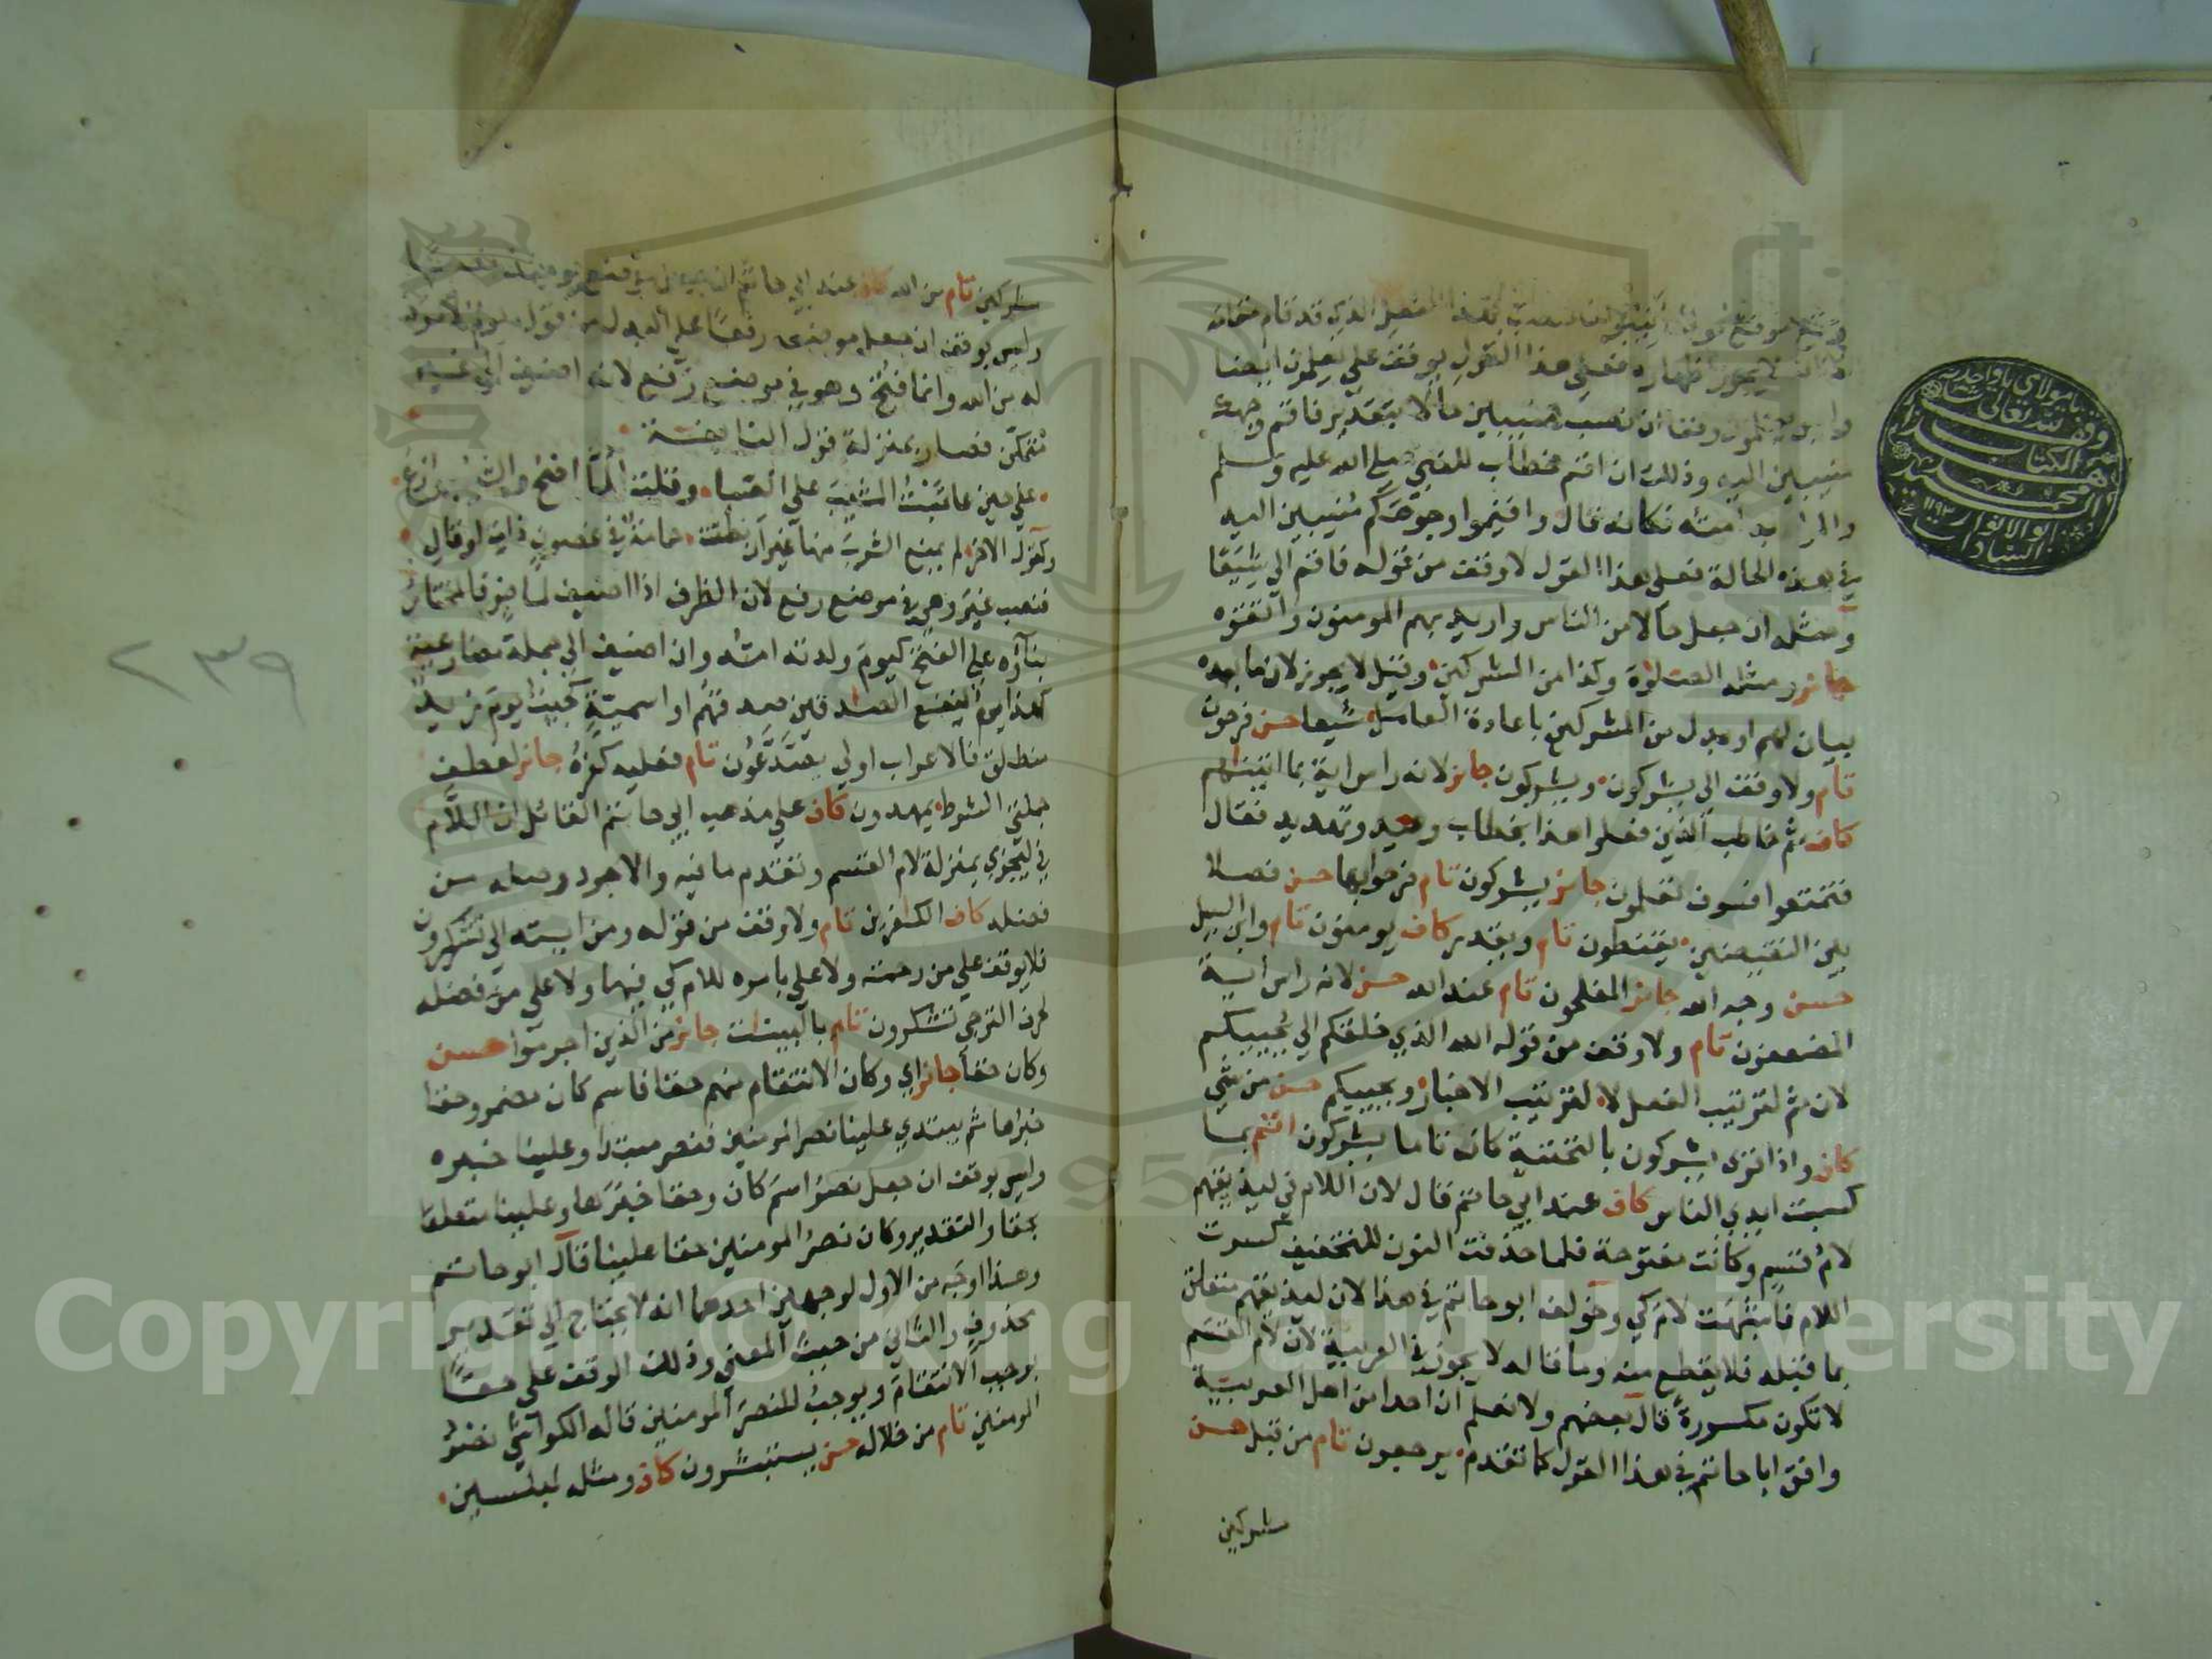 موضع قوله لنفسه الفعل الذي قد قام مقامه
لا يجوز اظهاره فعلى هذا القول يوقف على يعلمون ايضا
وليس يعلمون وقفا ان نصب منيبين حالا بتقدير فاقم وجهك
منيبين اليه وذلك ان اقم خطاب للنبي صلى الله عليه وسلم
والمراد به امته فكانه قال واقيموا وجوهكم منيبين اليه
في هذه الحالة فعلى هذا القول لا وقف من قوله فاقم الى شيعا
ومثله ان جعل حالا من الناس واريد بهم المومنون واتقوه
جائز ومثله الصلوة وكذا من المشركين وقيل لا يجوز لان ما بعده
بيان لهم او بدل من المشركين باعادة العامل شيعا حسن فرحون
تام ولا وقف الى يشركون ويشركون جائز لانه راس اية بما اتيناهم
كاف ثم خاطب الذين فعلوا هذا بخطاب وعيد وتهديد فقال
فتمتعوا فسوف تعلمون جائز يشركون تام فرحوا بها حسن فصلا
بين النقيضين يقنطون تام ويقدر كاف يومنون تام وابن السبيل
حسن وجه الله جائز المفلحون تام عند الله حسن لانه راس اية
المضعفون تام ولا وقف من قوله الله الذي خلقكم الى يحييكم
لان ثم لترتيب الفعل لا لترتيب الاخبار ويحييكم حسن من شي
كاف واذا قرى يشركون بالتحتية كان تاما يشركون اتم بما
كسبت ايدي الناس كاف عند ابي حاتم قال لان اللام في ليذيقهم
لام قسم وكانت مفتوحة فلما حذفت النون للتخفيف كسرت
اللام فاشبهت لام كي وخولف ابو حاتم في هذا لان ليذيقهم متعلق
بما قبله فلا يقطع منه وما قاله لا يجوز في العربية لان لام القسم
لا تكون مكسورة قال بعضهم ولا نعلم ان احدا من اهل العربية
وافق ابا حاتم في هذا القول كما تقدم يرجعون تام من قبل حسن
مشركين
يا مولاي يا واحد
وقف لله تعالى
هذا الكتاب
محمد
ابو الانوار
السادات
١١٩٣
مشركين تام من الله كاف عند ابي حاتم ان جعل موضع يومئذ نصبا
وليس بوقف ان جعل موضعه رفعا على البدل من قوله يوم لا مرد
له من الله وانما فتح وهو في موضع رفع لانه اضيف الى غير
متمكن فصار بمنزلة قول النابغة
على حين عاتبت المشيب على الصبا وقلت المّا اصح والشيب وازع
وكقول الاخر لم يمنع الشرب منها غير ان نطقت حمامة في غصون ذات اوقال
فنصب غير وهي في موضع رفع لان الظرف اذا اضيف لماض فالمختار
بناؤه على الفتح كيوم ولدته امه وان اضيف الى جملة مضارعية
كهذا يوم ينفع الصادقين صدقهم او اسمية كجيت يوم زيد
منطلق فالاعراب اولى يصدعون تام فعليه كفره جائز لعطف
جملتي الشرط يمهدون كاف على مذهب ابي حاتم القائل ان اللام
في ليجزي بمنزلة لام القسم وتقدم ما فيه والاجود وصله من
فضله كاف الكافرين تام ولا وقف من قوله ومن اياته الى تشكرون
فلا يوقف على من رحمته ولا على بامره للام كي فيهما ولا على من فضله
لحرف الترجي تشكرون تام بالبينات جائز من الذين اجرموا حسن
وكان حقا جائز اي وكان الانتقام منهم حقا فاسم كان مضمر وحقا
خبرها ثم يبتدي علينا نصر المومنين فنصر مبتدا وعلينا خبره
وليس بوقف ان جعل نصر اسم كان وحقا خبرها وعلينا متعلقا
بحقا والتقدير وكان نصر المومنين حقا علينا قال ابو حاتم
وهذا اوجه من الاول لوجهين احدهما انه لا يحتاج الى تقدير
محذوف والثاني من حيث المعنى وذلك الوقف على حقا
يوجب الانتقام ويوجب للنصر المومنين قاله الكواشي نصر
المومنين تام من خلاله حسن يستبشرون كاف ومثله لمبلسين
٢٣٩
Copyright © King Saud University